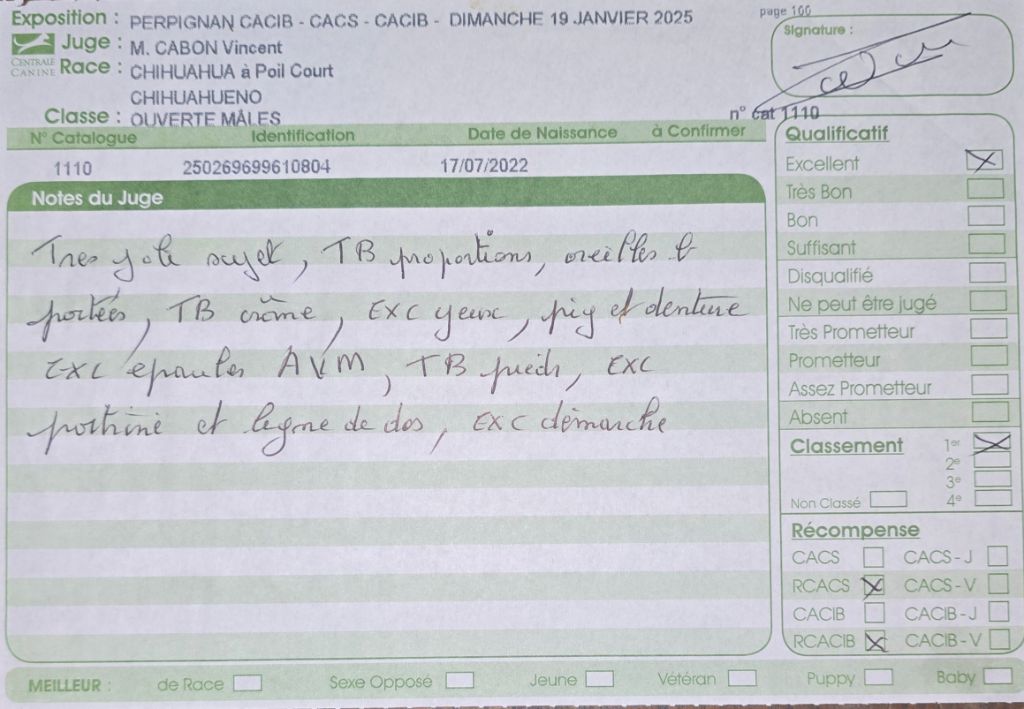 Exposition : PERPIGNAN CACIB - CACS - CACIB - DIMANCHE 19 JANVIER 2025
page 100
Signature :
Juge : M. CABON Vincent
CENTRALE CANINE
Race : CHIHUAHUA à Poil Court
CHIHUAHUENO
Classe : OUVERTE MÂLES
n° cat 1110
N° Catalogue Identification Date de Naissance à Confirmer
1110 250269699610804 17/07/2022
Notes du Juge
Tres joli sujet, TB proportions, oreilles b
portées, TB crâne, EXC yeux, pig et denture
EXC epaules AVM, TB pieds, EXC
poitrine et ligne de dos, EXC démarche
Qualificatif
Excellent
Très Bon
Bon
Suffisant
Disqualifié
Ne peut être jugé
Très Prometteur
Prometteur
Assez Prometteur
Absent
Classement 1er
2e
3e
Non Classé 4e
Récompense
CACS CACS-J
RCACS CACS-V
CACIB CACIB-J
RCACIB CACIB-V
MEILLEUR : de Race Sexe Opposé Jeune Vétéran Puppy Baby